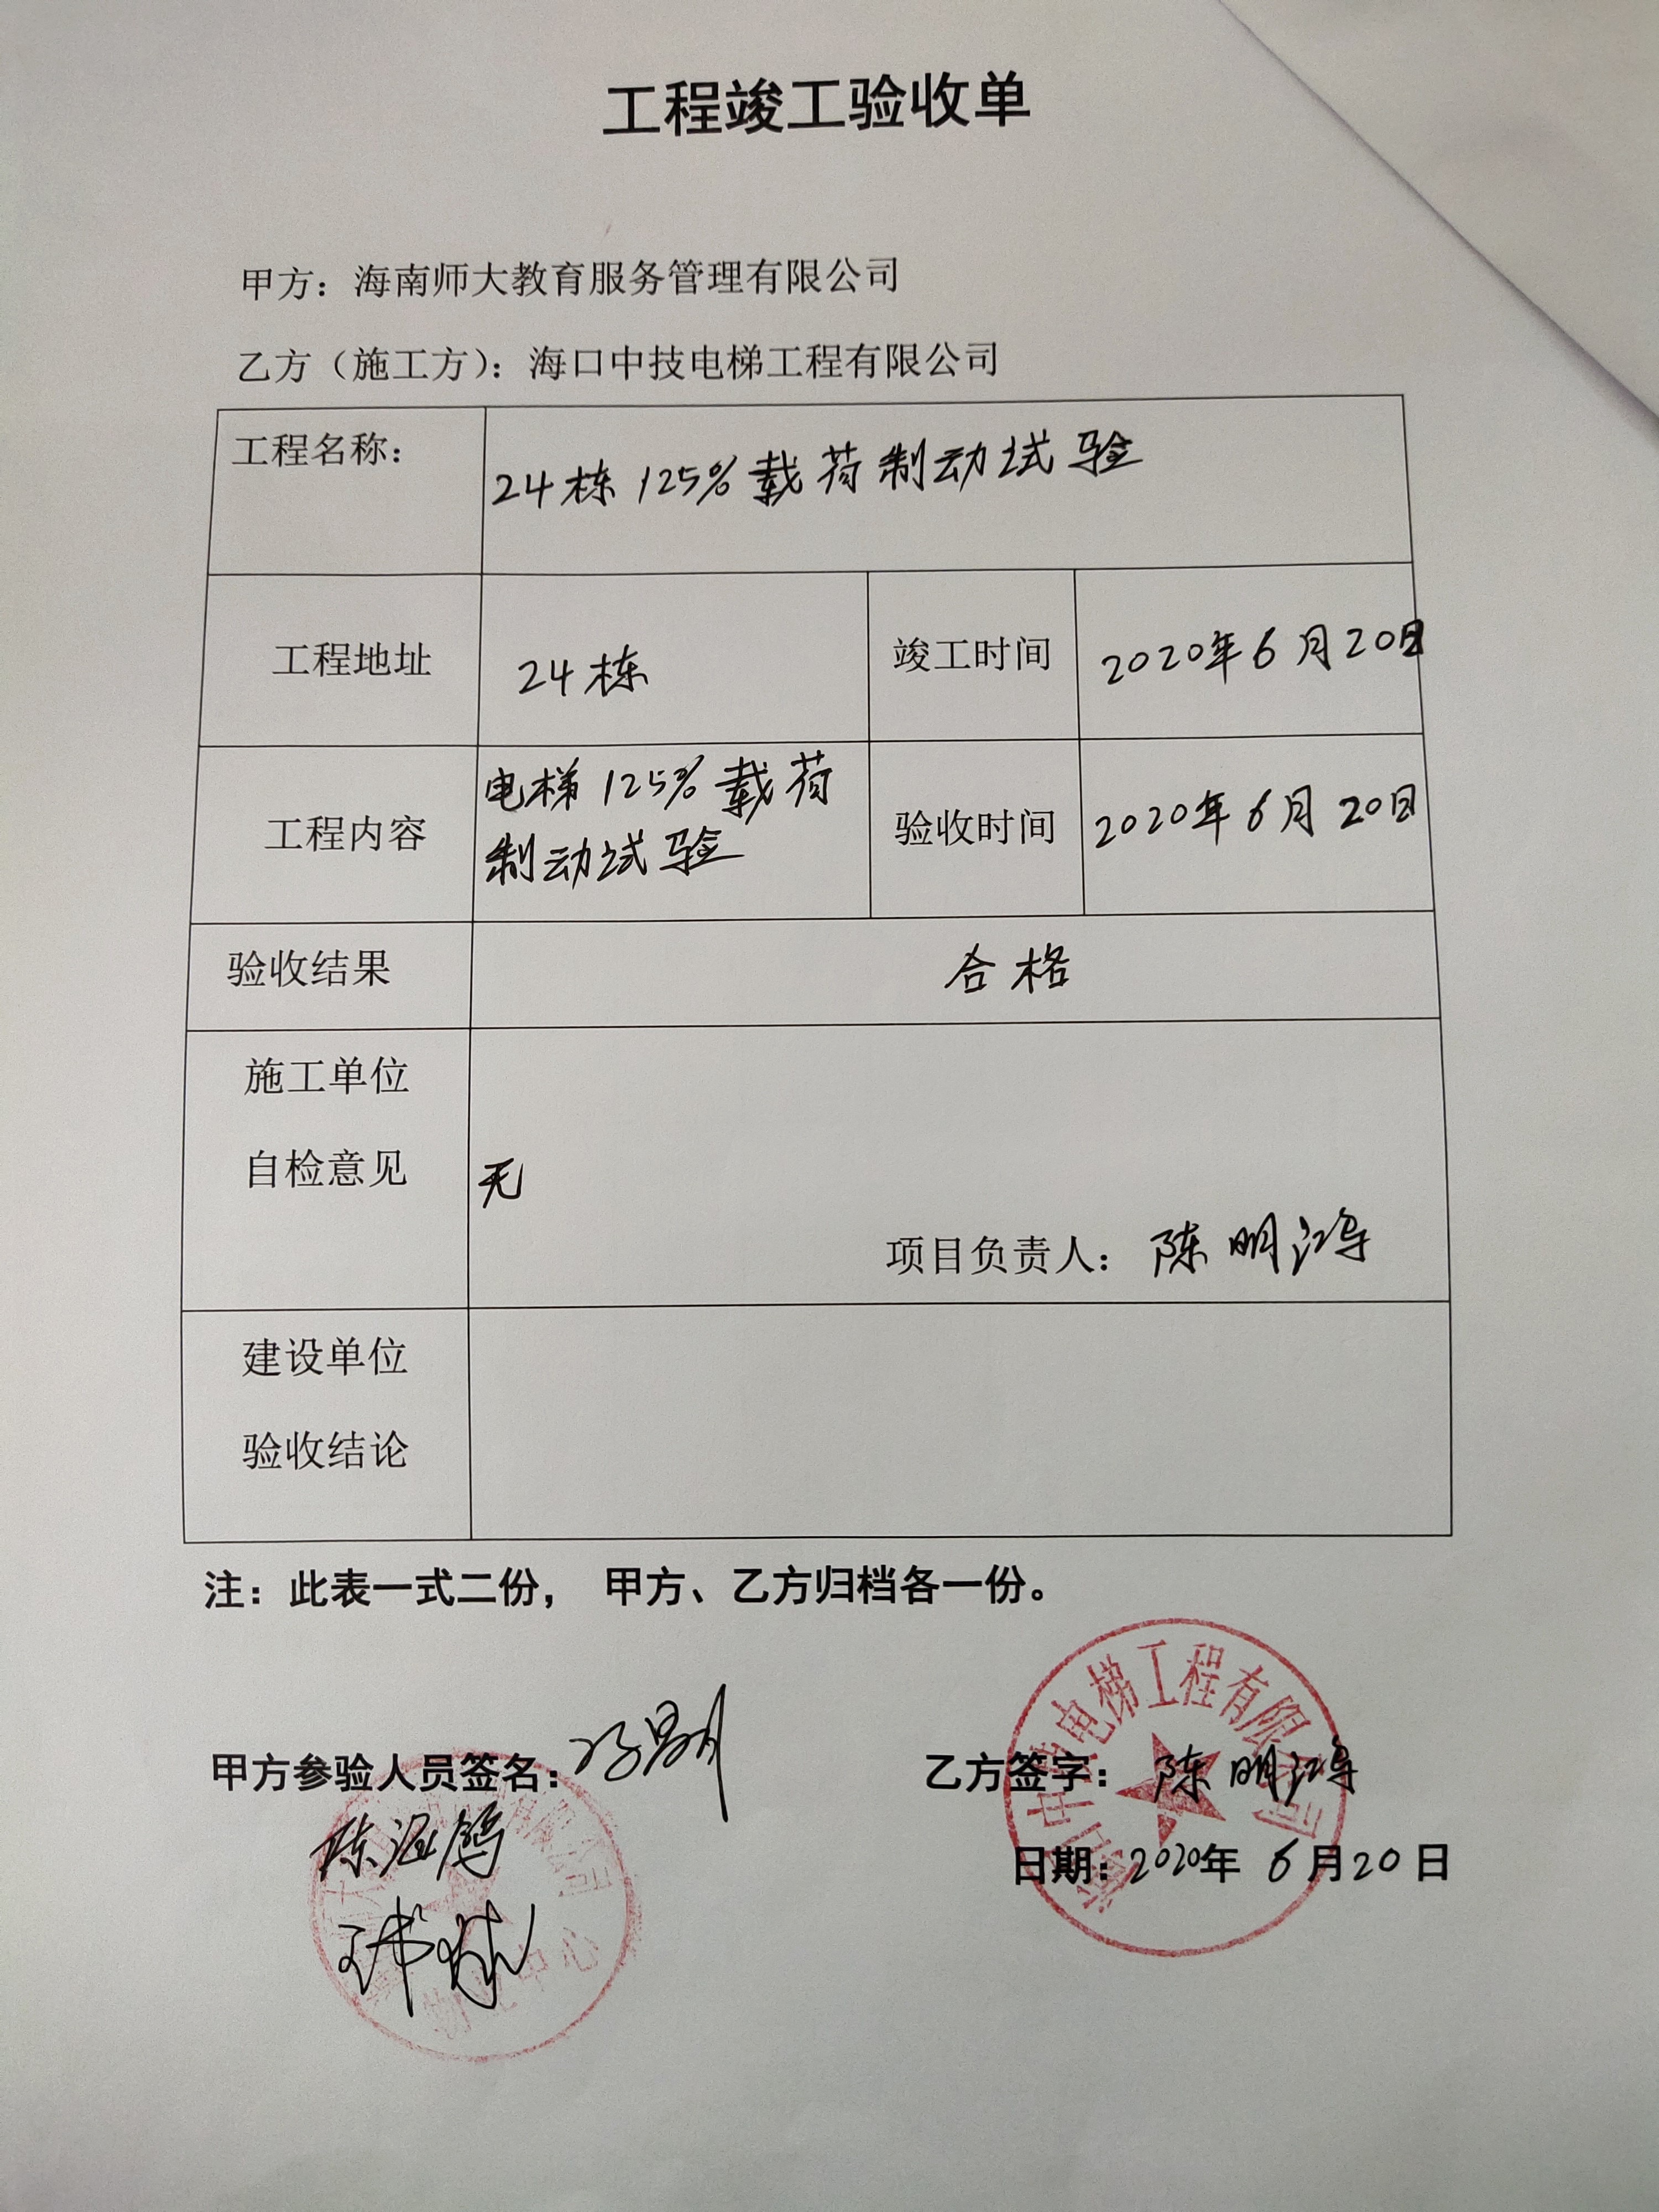 工程竣工验收单
甲方：海南师大教育服务管理有限公司
乙方（施工方）：海口中技电梯工程有限公司
工程名称：
24栋125%载荷制动试验
工程地址
24栋
竣工时间
2020年6月20日
工程内容
电梯125%载荷
制动试验
验收时间
2020年6月20日
验收结果
合格
施工单位
自检意见
无
项目负责人：陈明淳
建设单位
验收结论
注：此表一式二份， 甲方、乙方归档各一份。
甲方参验人员签名：
乙方签字：陈明淳
日期：2020年 6月20日
海口中技电梯工程有限公司
中心